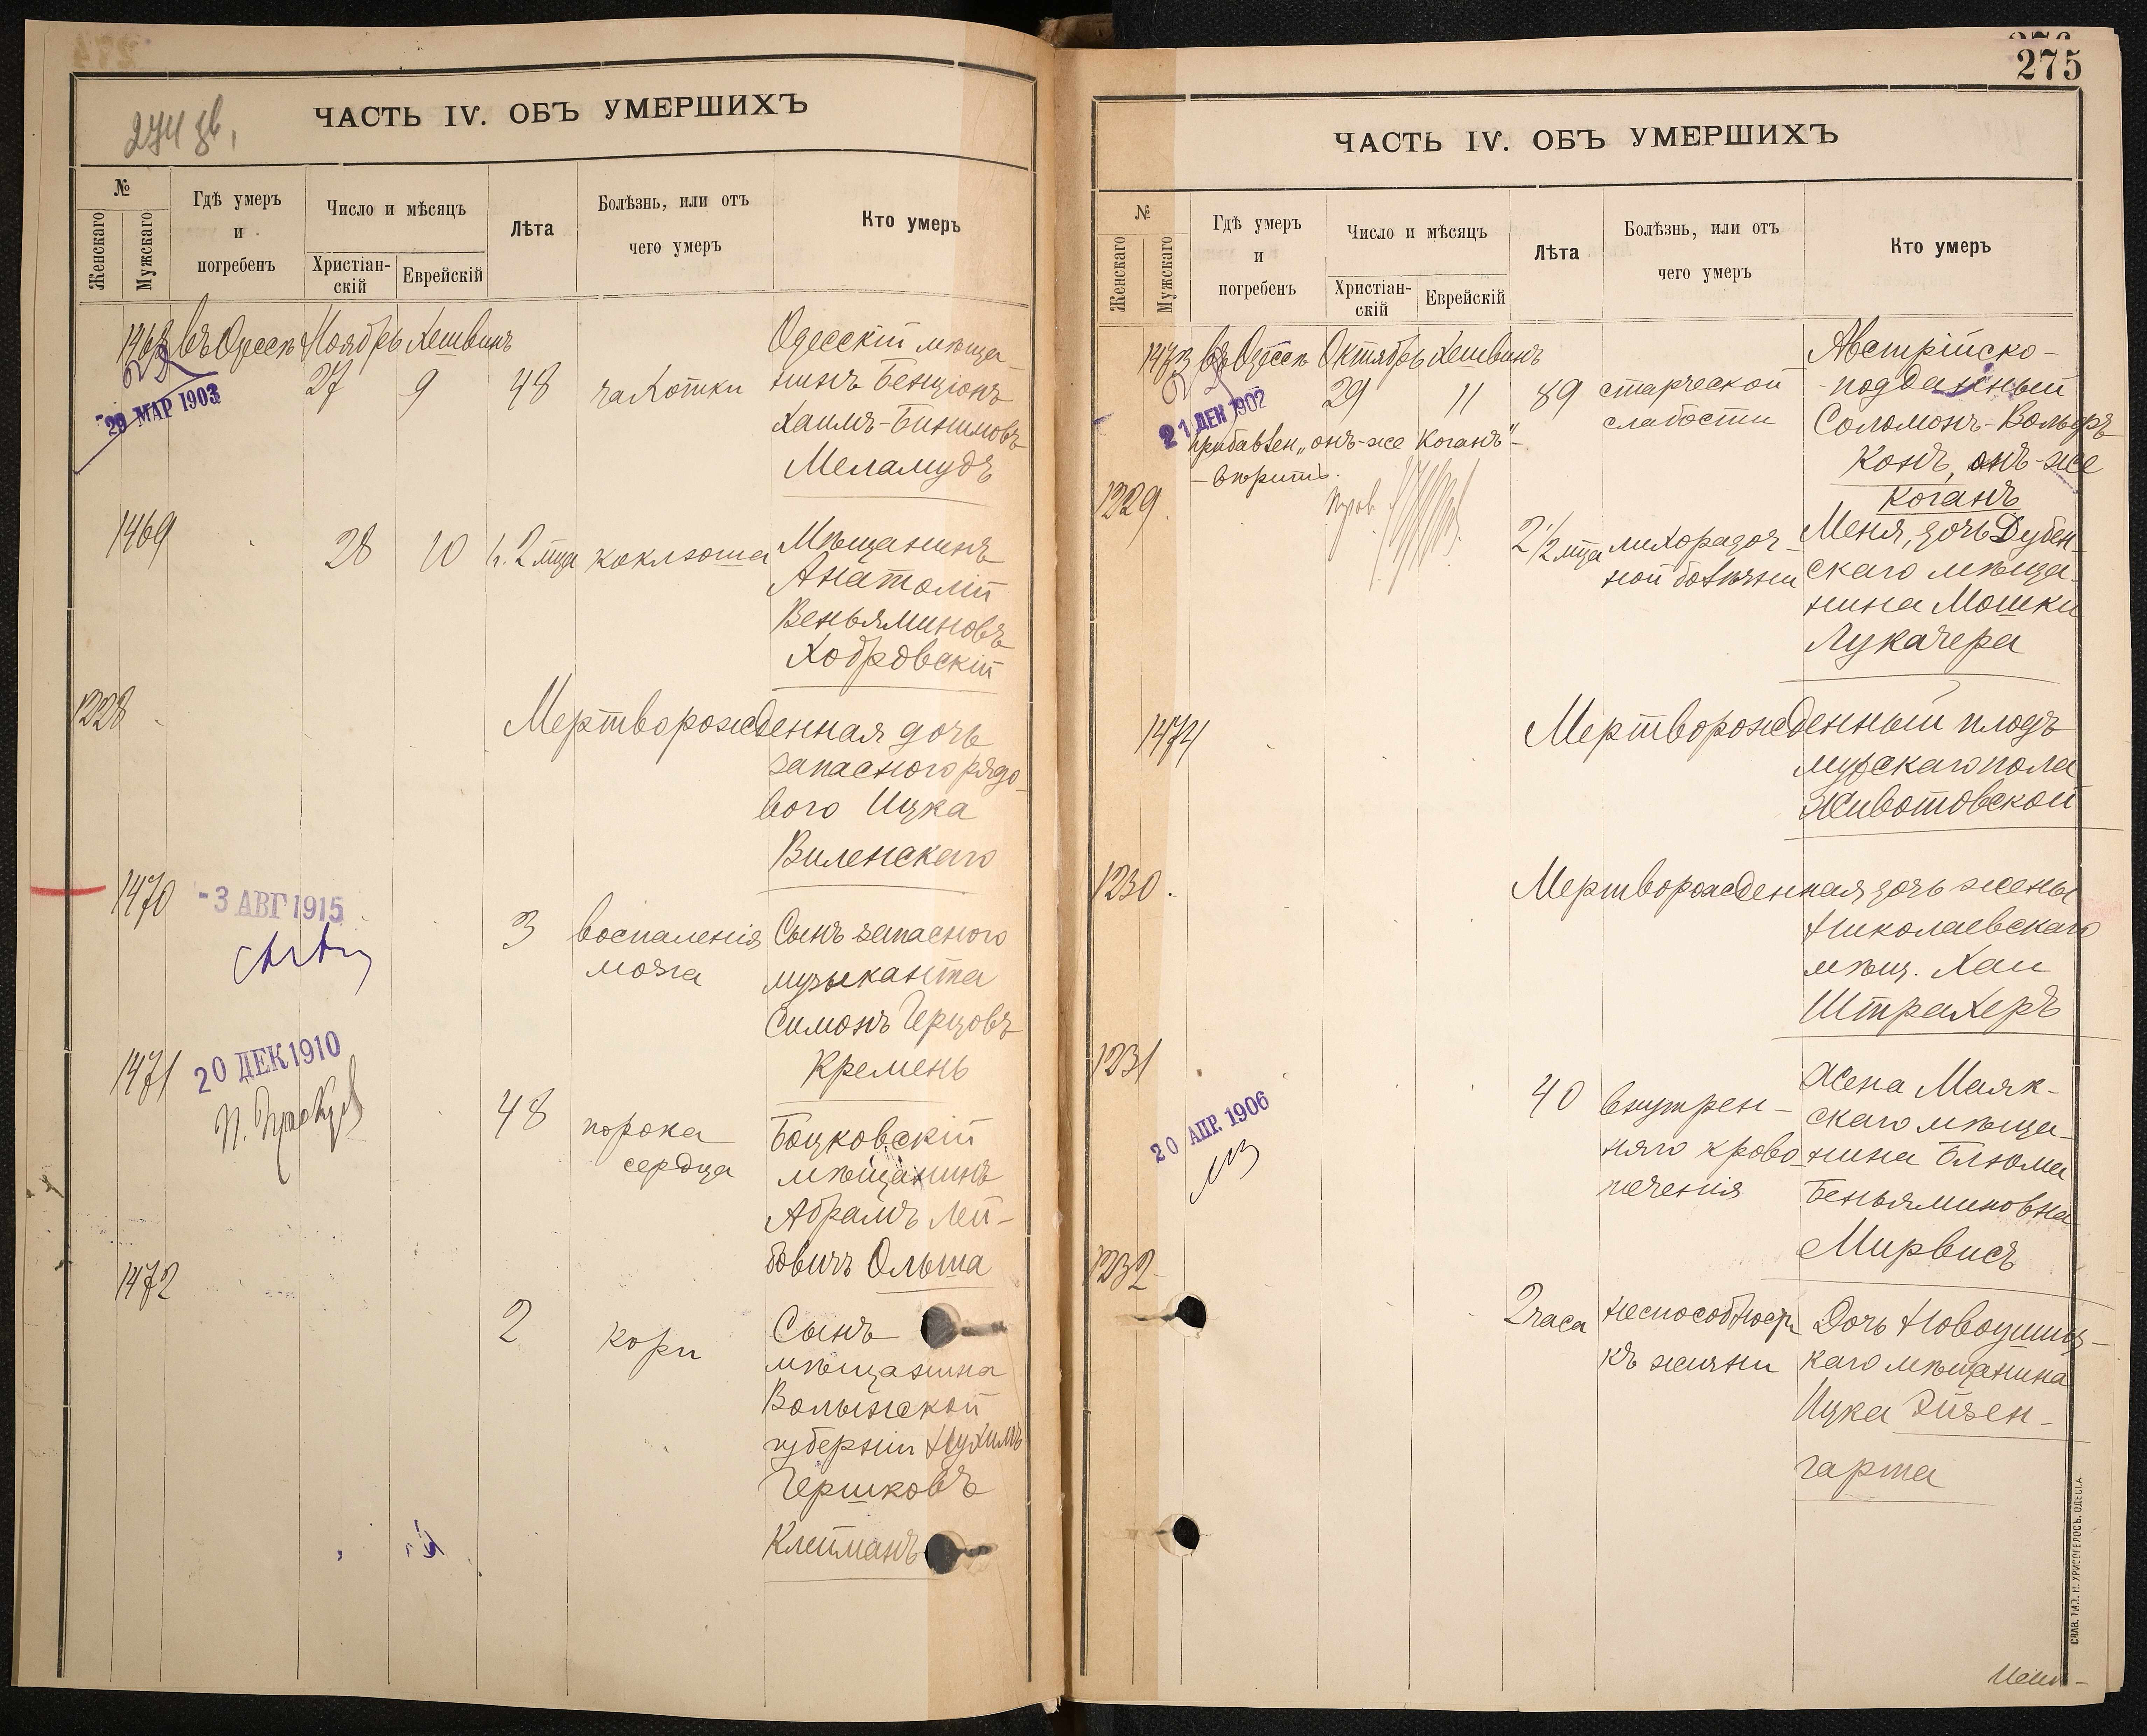 274 зв.
ЧАСТЬ IV. ОБЪ УМЕРШИХЪ
№
Женскаго
Мужскаго
Гдѣ умеръ
и
погребенъ
Число и мѣсяцъ
Христіан-
скій
Еврейскій
Лѣта
Болѣзнь, или отъ
чего умеръ
Кто умеръ
1468 въ Одессѣ Ноябрь Хешвинъ
27 9 48 чахотки
29 МАР 1903
Одесскій мѣща-
нинъ Бенціонъ
Хаимъ-Биниминовъ
Меламудъ
1469 28 10 1 г. 2 мѣца коклюша
Мѣщанинъ
Анатолій
Веньяминовъ
Ходровскій
1228
Мертворожденная дочь
запасного рядо-
вого Ицка
Виленскаго
1470
-3 АВГ 1915
3 воспаленія
мозга
Сынъ запасного
музыканта
Симонъ Герцовъ
Кремень
1471
20 ДЕК 1910
48 порока
сердца
Боцковскій
мѣщанинъ
Абрамъ Лей-
бовичъ Ольша
1472
2 кори
Сынъ
мѣщанина
Волынской
губерніи Нухимъ
Гершковъ
Клейманъ
275
ЧАСТЬ IV. ОБЪ УМЕРШИХЪ
№
Женскаго
Мужскаго
Гдѣ умеръ
и
погребенъ
Число и мѣсяцъ
Христіан-
скій
Еврейскій
Лѣта
Болѣзнь, или отъ
чего умеръ
Кто умеръ
1473 въ Одессѣ Октябрь Хешвинъ
29 11 89 старческой
слабости
21 ДЕК 1902
прибавлен. „онъ-же Коганъ“-
- вѣрить.
Австрійско-
-подданный
Соломонъ-Вольфъ
Конъ, онъ-же
Коганъ
1229
2 1/2 мѣца лихорадоч-
ной болѣзни
Меня, дочь Дубен-
скаго мѣща-
нина Мошки
Лукачера
1474
Мертворожденный плодъ
мужскаго пола
Животовской
1230
Мертворожденная дочь жены
Николаевскаго
мѣщ. Хаи
Штрахеръ
1231
20 АПР. 1906
40 внутрен-
няго крово-
теченія
Жена Маяк-
скаго мѣща-
нина Блюма
Беньяминовна
Мирвисъ
1232
2 часа неспособности
къ жизни
Дочь Новоушиц-
каго мѣщанина
Ицка Эйзен-
гарта
СЛАВ. ТИП. Н. ХРИСОГЕЛОСЪ. ОДЕССА